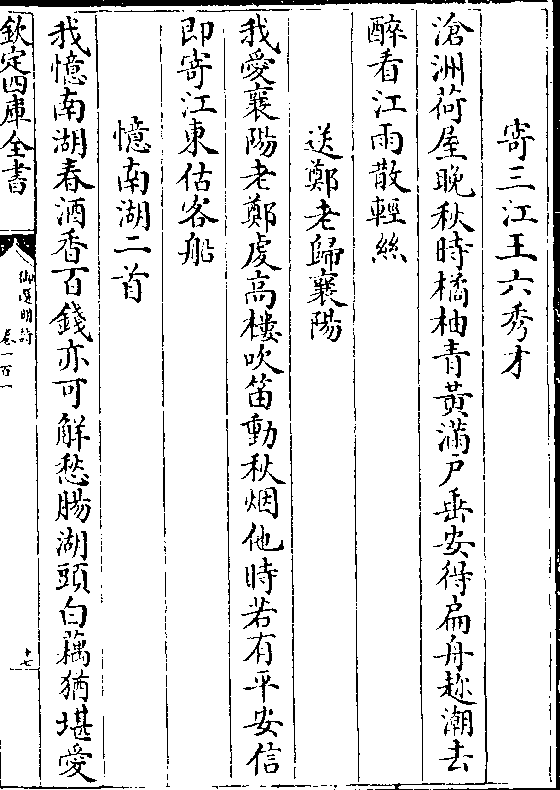 寄三江王六秀才
滄洲荷屋晚秋時橘柚青黃滿戸垂安得扁舟趂潮去
醉看江雨散輕絲
送鄭老歸襄陽
我愛襄陽老鄭虔高樓吹笛動秋烟他時若有平安信
即寄江東估客船
憶南湖二首
我憶南湖春酒香百錢亦可解愁腸湖頭白藕猶堪愛
欽定四庫全書
御選明詩
卷一百一
十七